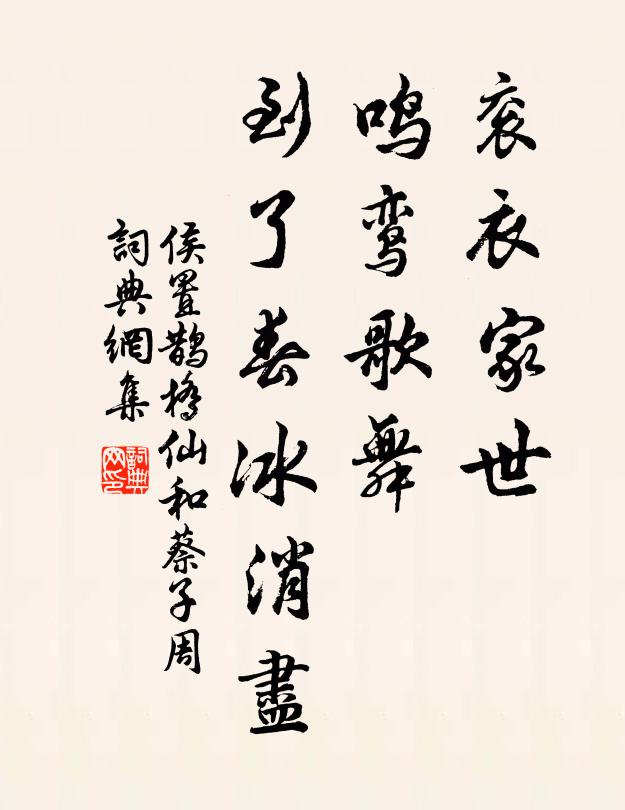 衮衣家世
鸣鸾歌舞
到了春冰消盡
侯置鹊橋仙和蔡子周
詞典網集
詞典网印